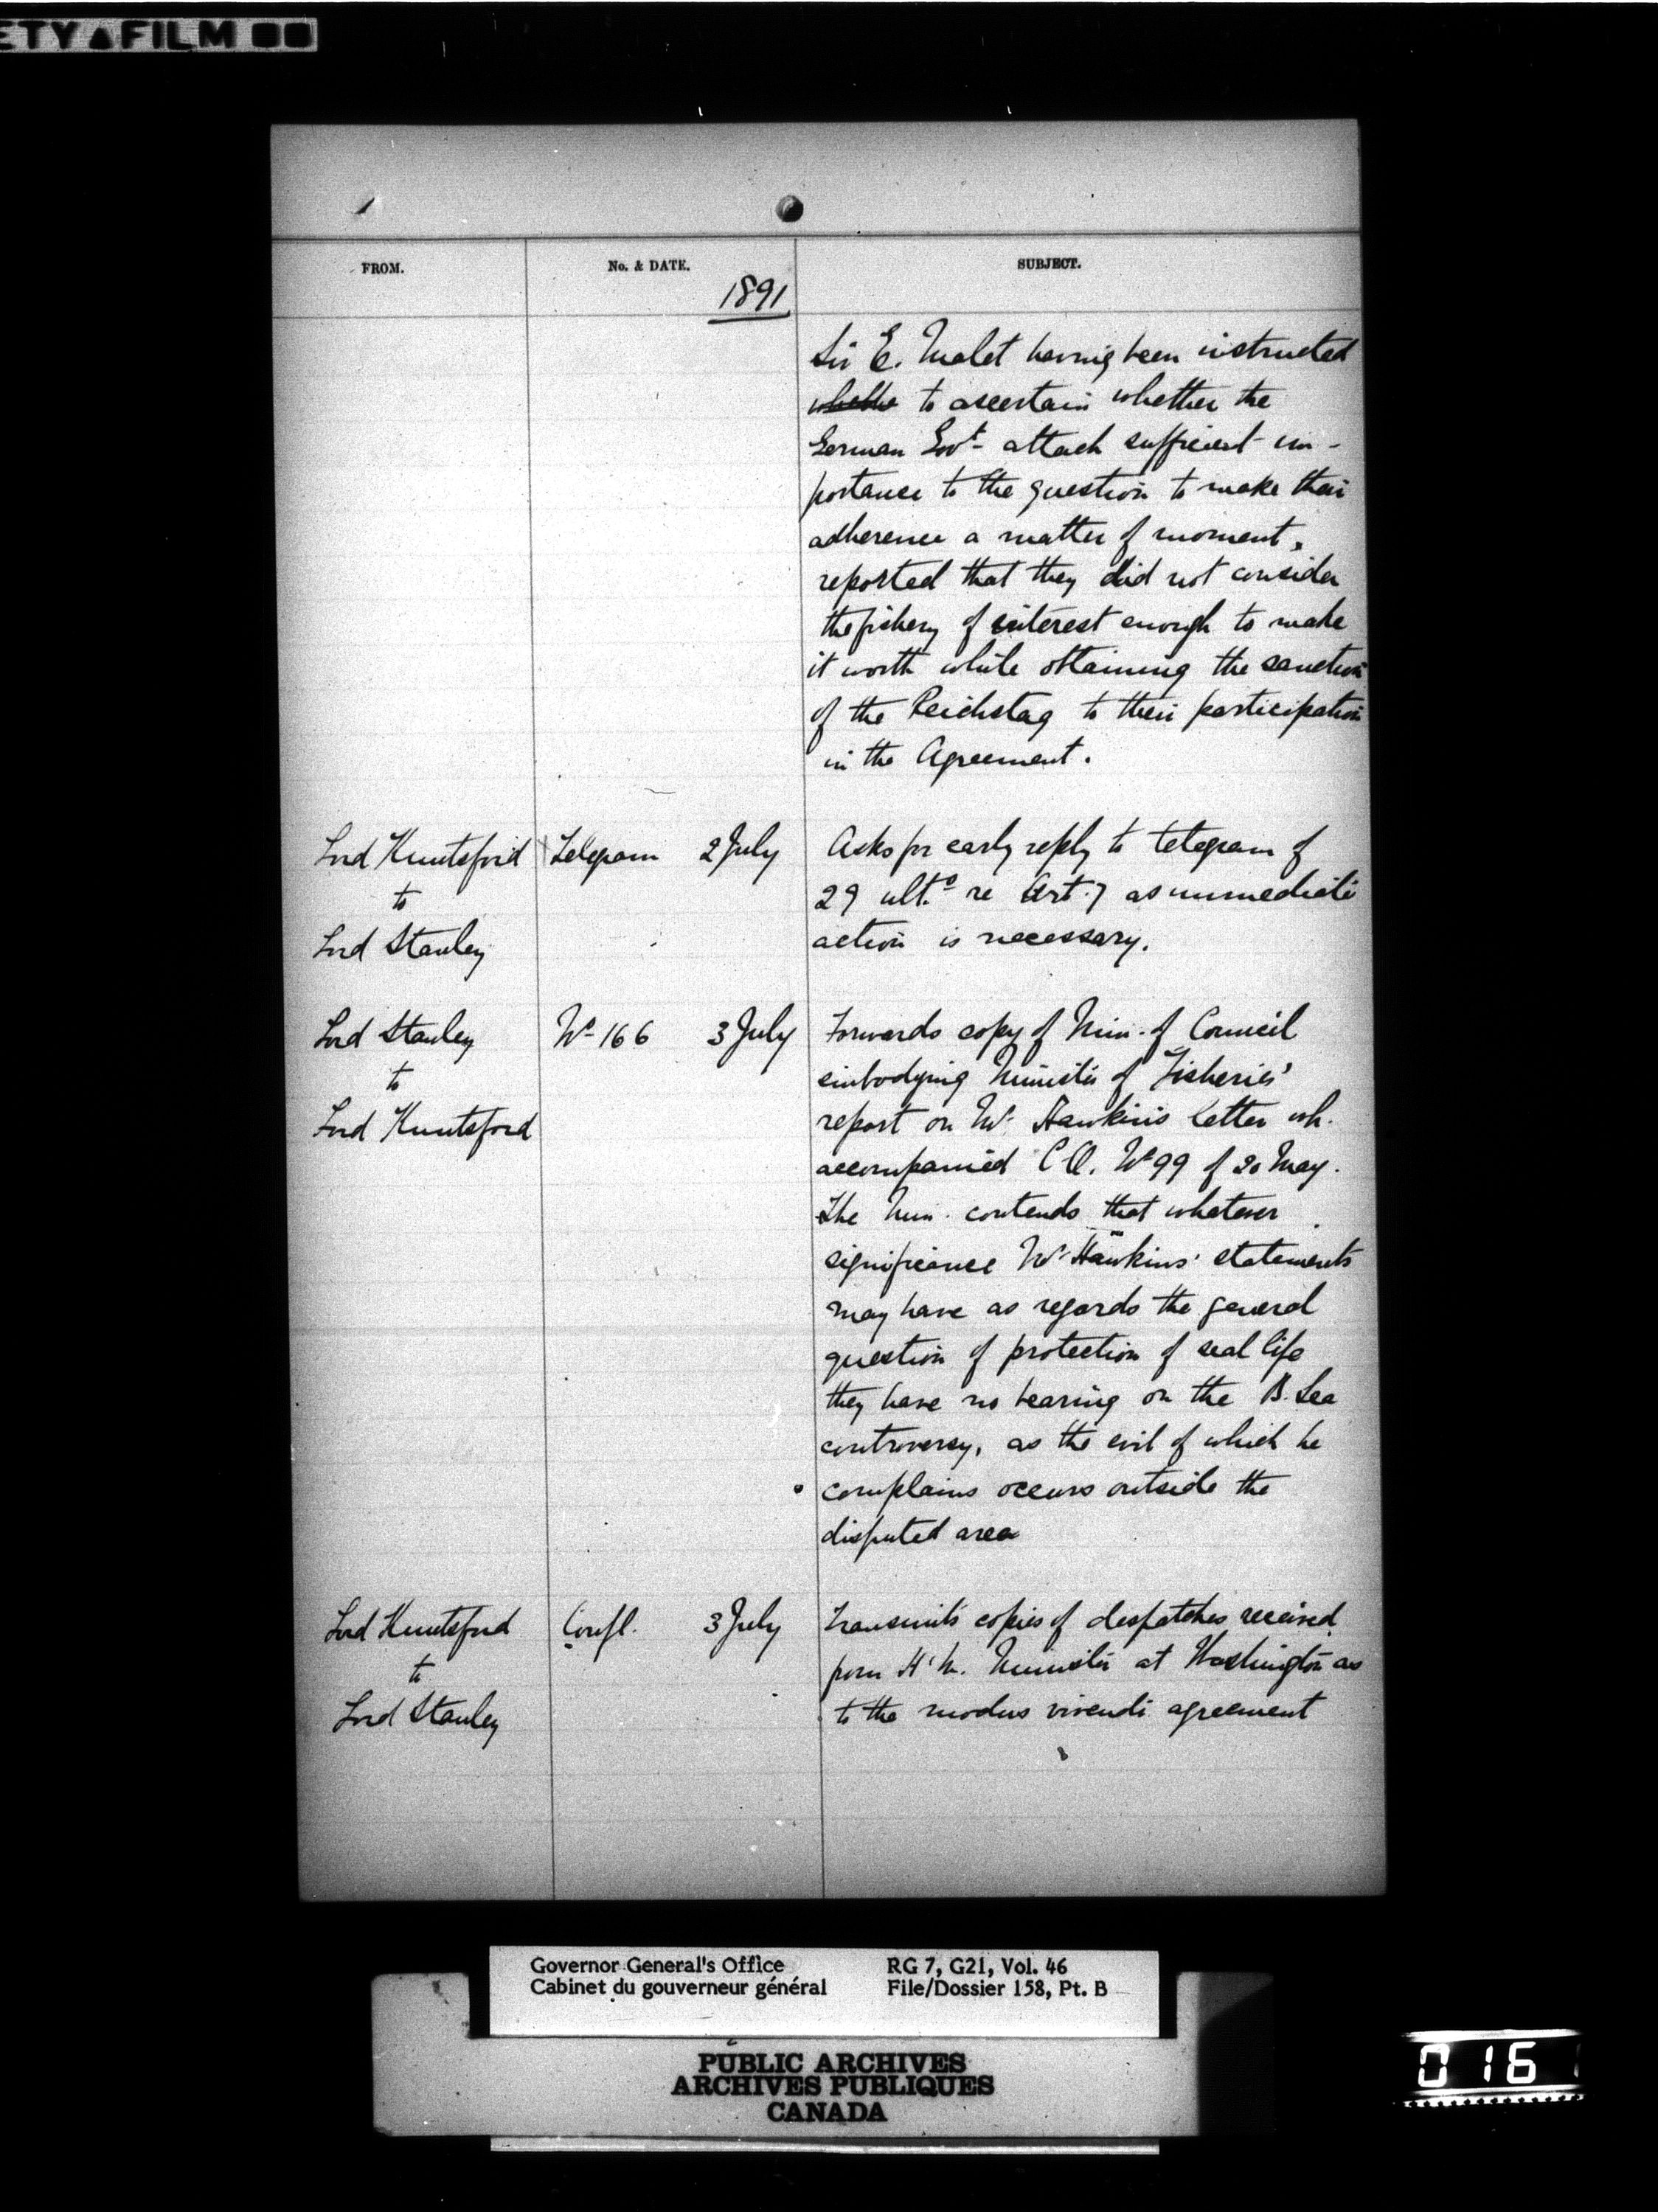 ETY FILM
FROM. No. & DATE. SUBJECT.
1891
Sir E. Malet having been instructed
whethe to ascertain whether the
German Govt. attach sufficient im-
portance to the question to make their
adherence a matter of moment,
reported that they did not consider
the fishery of interest enough to make
it worth while obtaining the sanction
of the Reichstag to their participation
in the Agreement.
Lord Knutsford Telegram 2 July Asks for early reply to telegram of
to 29 ulto. re Art. 7 as immediate
Lord Stanley action is necessary.
Lord Stanley No. 166 3 July Forwards copy of Min. of Council
to embodying Minister of Fisheries'
Lord Knutsford report on Mr. Hawkins letter wh.
accompanied C.O. No 99 of 20 May.
The Min. contends that whatever
significance Mr. Hawkins' statements
may have as regards the general
question of protection of seal life
they have no bearing on the B. Sea
controversy, as the evil of which he
complains occurs outside the
disputed area
Lord Knutsford Confl. 3 July Transmits copies of despatches received
to from H.M. Minister at Washington as
Lord Stanley to the modus vivendi agreement
Governor General's Office RG 7, G21, Vol. 46
Cabinet du gouverneur général File/Dossier 158, Pt. B
PUBLIC ARCHIVES
ARCHIVES PUBLIQUES
CANADA
016